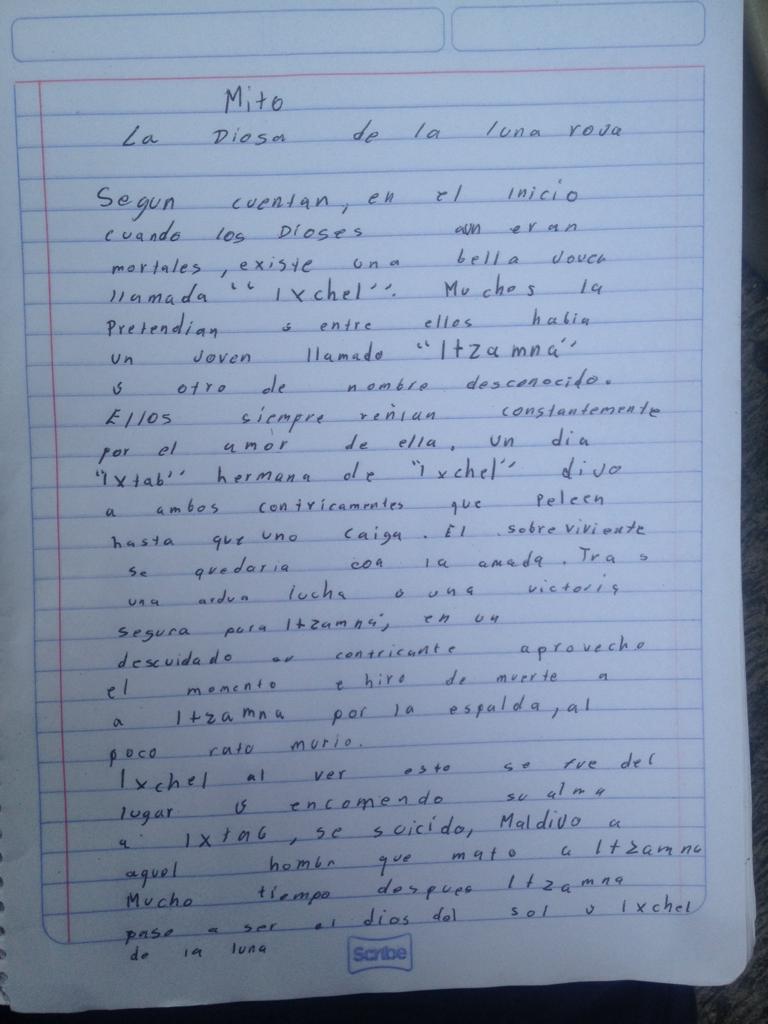 Mito
La Diosa de la luna roja
Segun cuentan, en el inicio
cuando los Dioses aun eran
mortales, existe una bella Joven
llamada "Ixchel". Muchos la
Pretendian y entre ellos habia
un Joven llamado "Itzamna"
y otro de nombre desconocido.
Ellos siempre reñian constantemente
por el amor de ella. un dia
"Ixtab" hermana de "Ixchel" dijo
a ambos contricamentes que Peleen
hasta que uno Caiga. El sobreviviente
se quedaria con la amada. Tras
una ardua lucha y una victoria
segura para Itzamná, en un
descuidado su contricante aprovecho
el momento e hiro de muerte a
a Itzamna por la espalda, al
poco rato murio.
Ixchel al ver esto se fue del
lugar y encomendo su alma
a Ixtab, se suicido, Maldijo a
aquel hombr que mato a Itzamna
Mucho tiempo despues Itzamna
paso a ser el dios del sol y Ixchel
de la luna
Scribe